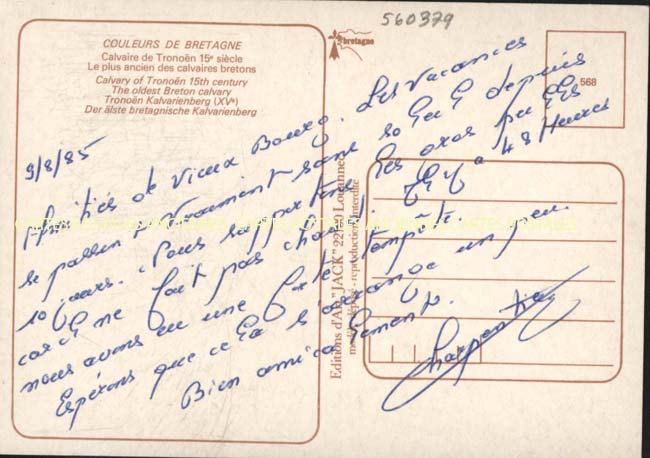 560379
COULEURS DE BRETAGNE
Calvaire de Tronoën 15e siècle
Le plus ancien des calvaires bretons
Calvary of Tronoën 15th century
The oldest Breton calvary
Tronoën Kalvarienberg (XVe)
Der älste bretagnische Kalvarienberg
bretagne
568
9/8/85
Amitiés de Vieux Bourg. Les vacances
se passent vraiment sans soleil depuis
10 jours. Nous supportons les gros pulls
car il ne fait pas chaud. Il y a 48 Heures
nous avons eu une forte tempête.
Espérons que cela s'arrange un peu.
Bien amicalement.
Charpentier
Editions d'Art "JACK" 22 Louannec
reproduction interdite